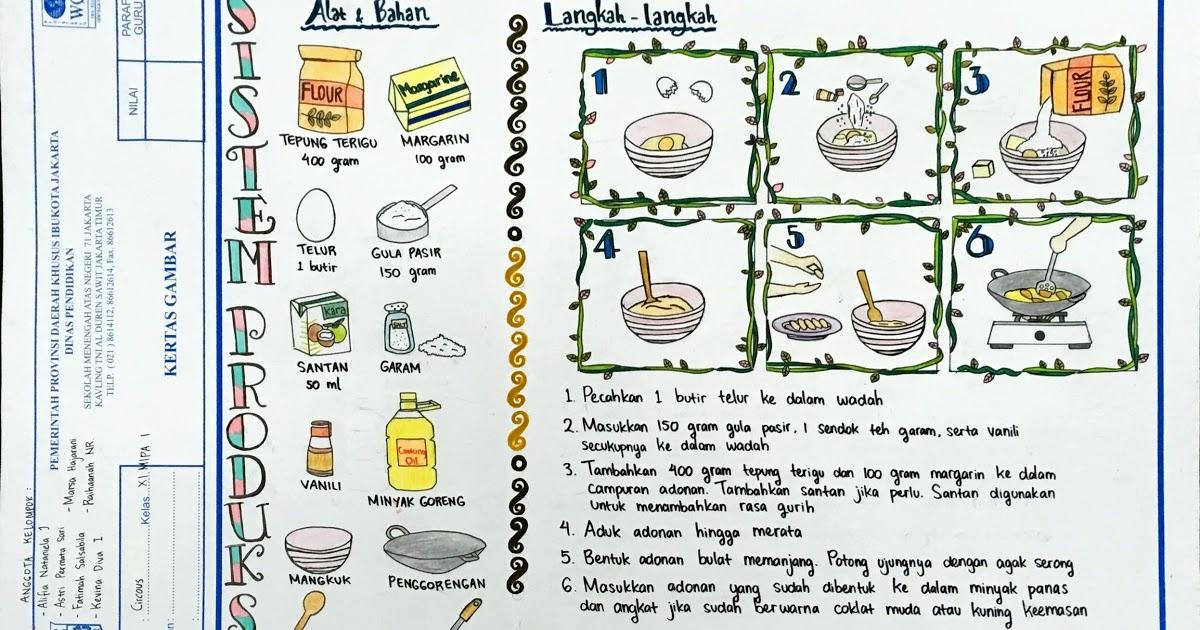 WO
PARAF GURU
NILAI
PEMERINTAH PROVINSI DAERAH KHUSUS IBUKOTA JAKARTA
DINAS PENDIDIKAN
SEKOLAH MENENGAH ATAS NEGERI 71 JAKARTA
KAVLING TNI AL DUREN SAWIT JAKARTA TIMUR
TELP. ( 021 ) 8614112, 86612614, Fax. 86612613
KERTAS GAMBAR
ANGGOTA KELOMPOK :
- Alifia Nataniela J
- Astri Permata Sari
- Fatimah Salsabila
- Kevina Diva I
- Marsa Hajarani
- Raihaanah NR.
: Circous
Kelas. XI MIPA 1
SISTEM PRODUKS
Alat & Bahan
FLOUR
TEPUNG TERIGU
400 gram
Margarine
MARGARIN
100 gram
TELUR
1 butir
GULA PASIR
150 gram
kara
SANTAN
50 ml
SALT
GARAM
VANILI
Cooking
Oil
MINYAK GORENG
MANGKUK
PENGGORENGAN
Langkah - langkah
1
2
3
FLOUR
4
5
6
1. Pecahkan 1 butir telur ke dalam wadah
2. Masukkan 150 gram gula pasir, 1 sendok teh garam, serta vanili
secukupnya ke dalam wadah
3. Tambahkan 400 gram tepung terigu dan 100 gram margarin ke dalam
campuran adonan. Tambahkan santan jika perlu. Santan digunakan
untuk menambahkan rasa gurih
4. Aduk adonan hingga merata
5. Bentuk adonan bulat memanjang. Potong ujungnya dengan agak serong
6. Masukkan adonan yang sudah dibentuk ke dalam minyak panas
dan angkat jika sudah berwarna coklat muda atau kuning keemasan